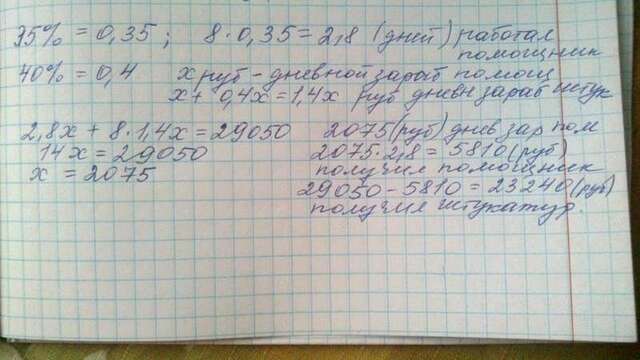 35% = 0,35 ; 8·0,35 = 2,8 (дней) работал
помощник
40% = 0,4 х руб - дневной зараб помощ
х + 0,4х = 1,4х руб дневн зараб штук
2,8х + 8·1,4х = 29050
14х = 29050
х = 2075
2075 (руб) днев зар пом
2075·2,8 = 5810 (руб)
получил помощник
29050 - 5810 = 23240 (руб)
получил штукатур.